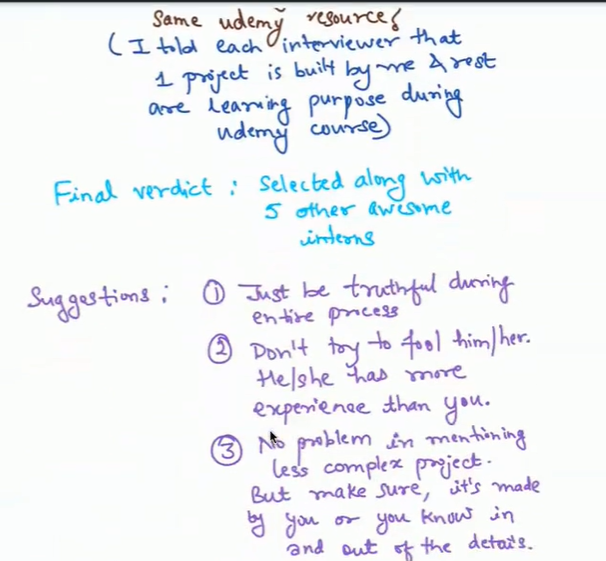 Same udemy resources
(I told each interviewer that
1 project is built by me & rest
are learning purpose during
udemy course)
Final verdict : Selected along with
5 other awesome
interns
Suggestions : ① Just be truthful during
entire process
② Don't try to fool him/her.
He/she has more
experience than you.
③ No problem in mentioning
less complex project.
But make sure, it's made
by you or you know in
and out of the details.